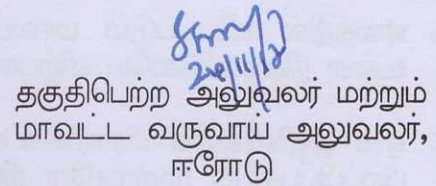 24/11/12
தகுதிபெற்ற அலுவலர் மற்றும்
மாவட்ட வருவாய் அலுவலர்,
ஈரோடு